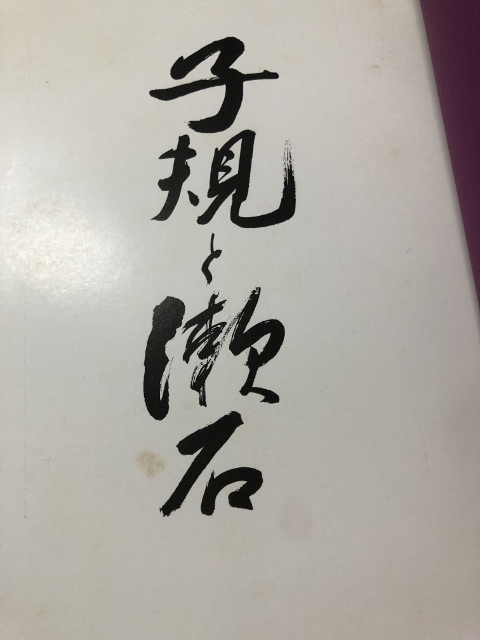 子規と漱石